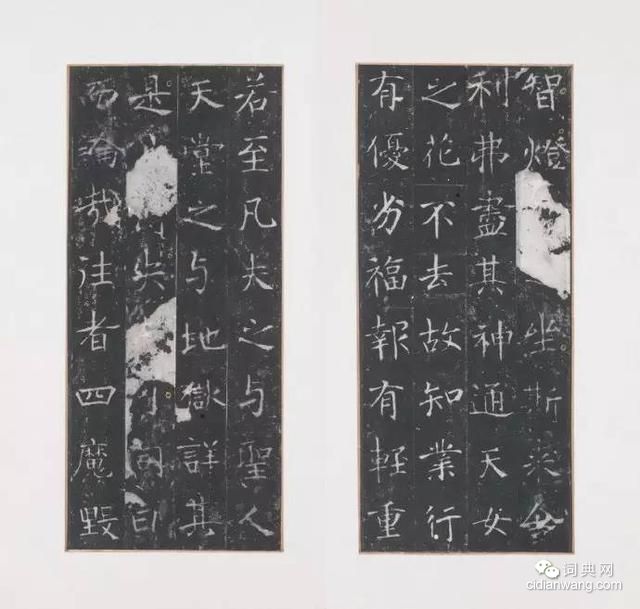 智燈坐斯来舍
利弗盡其神通天女
之花不去故知業行
有優劣福報有輕重
若至凡夫之与聖人
天堂之与地獄詳其
是失可同日
而論哉往者四魔毀
词典网
cidianwang.com